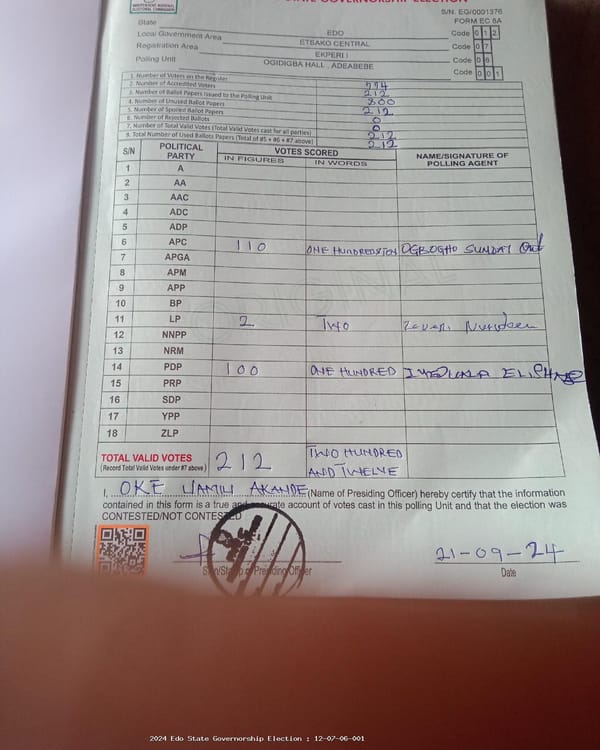 INDEPENDENT NATIONAL
ELECTORAL COMMISSION
STATE GOVERNORSHIP ELECTION
S/N. EG/0001376
FORM EC 8A
State EDO Code 0 1 2
Local Government Area ETSAKO CENTRAL Code 0 7
Registration Area EKPERI I Code 0 6
Polling Unit OGIDIGBA HALL, ADEABEBE Code 0 0 1
1. Number of Voters on the Register 774
2. Number of Accredited Voters 212
3. Number of Ballot Papers Issued to the Polling Unit 800
4. Number of Unused Ballot Papers 212
5. Number of Spoiled Ballot Papers 0
6. Number of Rejected Ballots 0
7. Number of Total Valid Votes (Total Valid Votes cast for all parties) 212
8. Total Number of Used Ballots Papers (Total of #5 + #6 + #7 above) 212
S/N POLITICAL PARTY VOTES SCORED NAME/SIGNATURE OF POLLING AGENT
IN FIGURES IN WORDS
1 A
2 AA
3 AAC
4 ADC
5 ADP
6 APC 110 ONE HUNDRED$TEN OGBOGHO SUNDAY
7 APGA
8 APM
9 APP
10 BP
11 LP 2 TWO
12 NNPP
13 NRM
14 PDP 100 ONE HUNDRED
15 PRP
16 SDP
17 YPP
18 ZLP
TOTAL VALID VOTES 212 TWO HUNDRED
(Record Total Valid Votes under #7 above) AND TWELVE
I, OKE JAMIU AKANDE (Name of Presiding Officer) hereby certify that the information
contained in this form is a true and accurate account of votes cast in this polling Unit and that the election was
CONTESTED/NOT CONTESTED
Sign/Stamp of Presiding Officer
21-09-24
Date
2024 Edo State Governorship Election : 12-07-06-001